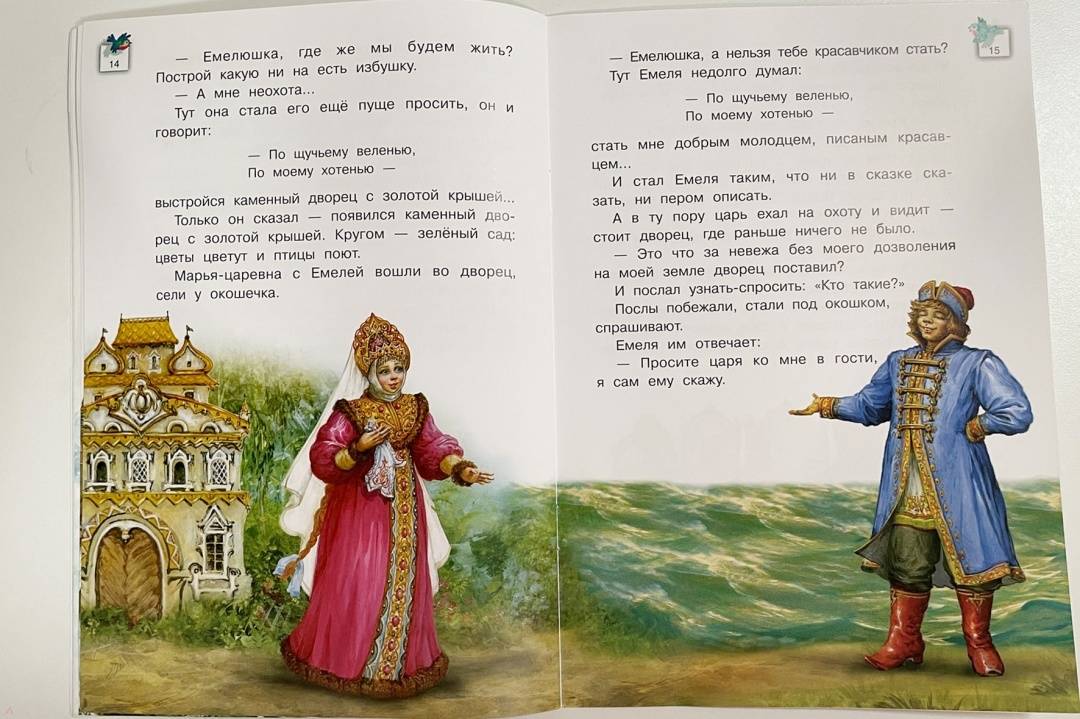 14
— Емелюшка, где же мы будем жить?
Построй какую ни на есть избушку.
— А мне неохота...
Тут она стала его ещё пуще просить, он и
говорит:
— По щучьему веленью,
По моему хотенью —
выстройся каменный дворец с золотой крышей...
Только он сказал — появился каменный дво-
рец с золотой крышей. Кругом — зелёный сад:
цветы цветут и птицы поют.
Марья-царевна с Емелей вошли во дворец,
сели у окошечка.
15
— Емелюшка, а нельзя тебе красавчиком стать?
Тут Емеля недолго думал:
— По щучьему веленью,
По моему хотенью —
стать мне добрым молодцем, писаным красав-
цем...
И стал Емеля таким, что ни в сказке ска-
зать, ни пером описать.
А в ту пору царь ехал на охоту и видит —
стоит дворец, где раньше ничего не было.
— Это что за невежа без моего дозволения
на моей земле дворец поставил?
И послал узнать-спросить: «Кто такие?»
Послы побежали, стали под окошком,
спрашивают.
Емеля им отвечает:
— Просите царя ко мне в гости,
я сам ему скажу.